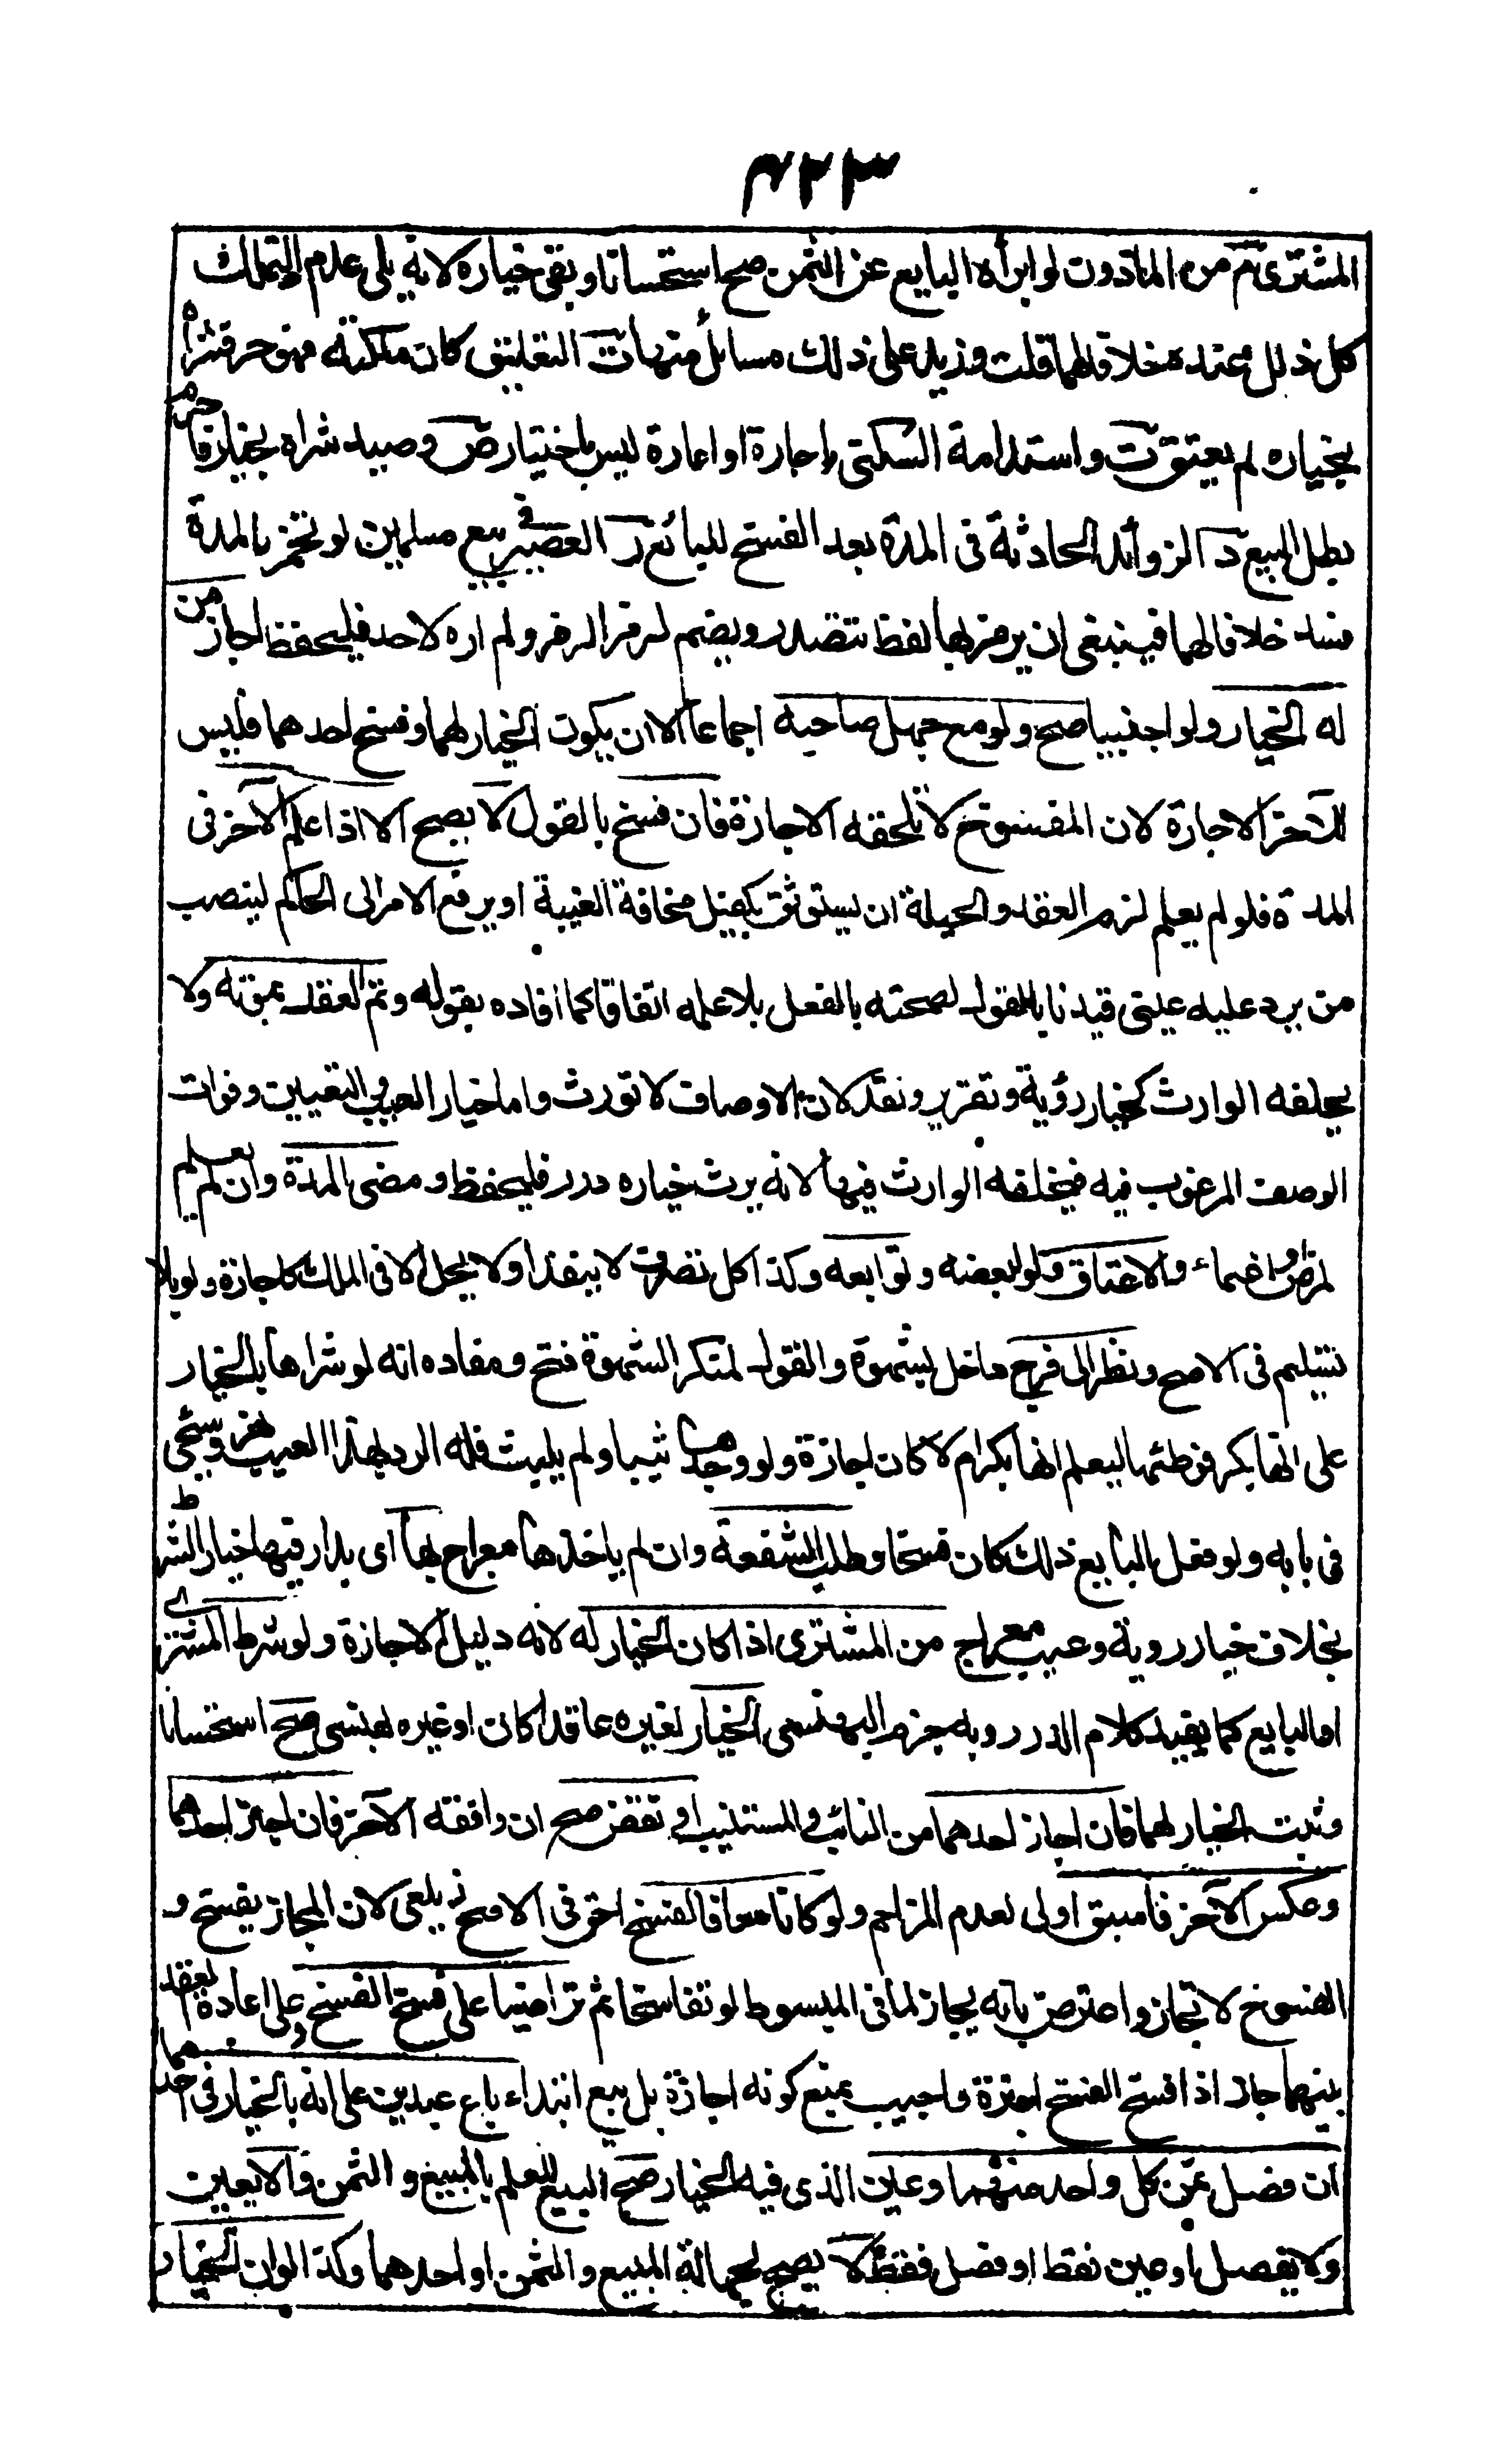 ٣٢٣
المشترى تم من المأذون لو ابرأه البايع عن الثمن صح استحسانا وبقى خياره لانه يلى عدم التملك
كل ذلك عنده خلافا لهما قلت وزيد على ذلك مسائل منها ت التعليق كان ملكته فهو حر فشراه
بخياره لم يعتق ت واستدامة السكنى باجارة او اعارة ليس باختيار ص وصيد شراه بخيار فاحرم
بطل البيع د الزوائد الحادثة فى المدة بعد الفسخ للبائع ر العصير فى بيع مسلمين لو تخمر بالمدة
فسد خلافا لهما فينبغى ان يرمز لها لفظ تتصدر ويضم لرمز الرمز ولم اره لاحد فليحفظ اجاز من
له الخيار ولو اجنبيا صح ولو مع جهل صاحبه اجماعا الا ان يكون الخيار لهما وفسخ احدهما فليس
للآخر الاجازة لان المفسوخ لا تلحقه الاجازة فان فسخ بالقول لا يصح الا اذا علم الآخر فى
المدة فلو لم يعلم لزم العقد والحيلة ان يستوثق بكفيل مخافة الغيبة او يرفع الامر الى الحاكم لينصب
من يرد عليه عينى قيدنا بالقول لصحته بالفعل بلا علمه اتفاقا كما افاده بقوله وتم العقد بموته ولا
يخلفه الوارث كخيار رؤية وتغرير ونقد لان الاوصاف لا تورث واما خيار العيب والتعيين وفوات
الوصف المرغوب فيه فيخلفه الوارث فيها لانه يرث خياره درر فليحفظ ومضى المدة وان لم يعلم
لمرض او اغماء والاعتاق ولو لبعضه وتوابعه وكذا كل تصرف لا ينفذ او لا يحل الا فى الملك كاجازة ولو بلا
تسليم فى الاصح ونظر الى فرج داخل بشهوة والقول لمنكر الشهوة فتح ومفاده انه لو شراها بالخيار
على انها بكر فوطئها ليعلم انها بكر ام لا كان اجازة ولو وجدها ثيبا ولم يلبث فله الرد بهذا العيب نهر وسيجى
فى بابه ولو فعل البايع ذلك كان فسخا وطلب الشفعة وان لم ياخذها معراج بها اى بدار فيها خيار الشرط
بخلاف خيار روية وعيب معراج من المشترى اذا كان الخيار له لانه دليل الاجازة ولو شرط المشترى
او البايع كما يفيد كلام الدرر وبه جزم البهنسى الخيار لغيره عاقدا كان او غيره بهنسى صح استحسانا
وثبت الخيار لهما فان اجاز احدهما من النائب والمستنيب او نقض صح ان وافقه الآخر فان اجاز احدهما
وعكس الآخر فالاسبق اولى لعدم المزاحم ولو كانا معا فالفسخ احق فى الاصح زيلعى لان المجاز يفسخ و
المفسوخ لا تجاز واعترض بانه يجاز لما فى المبسوط لو تفاسخا ثم تراضيا على فسخ الفسخ وعلى اعادة العقد
بينهما جاز اذا فسخ الفسخ اجازة واجيب بمنع كونه اجازة بل بيع ابتداء باع عبدين على انه بالخيار فى احدهما
ان فصل ثمن كل واحد منهما وعين الذى فيه الخيار صح البيع للعلم بالمبيع والثمن والا يعين
ولا يفصل او عين فقط او فصل فقط لا يصح لجهالة المبيع والثمن او احدهما وكذا لو ان الخيار